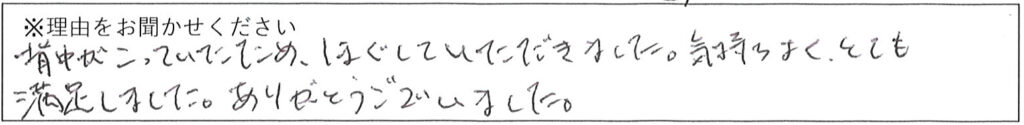 ※理由をお聞かせください
背中がこっていたため、ほぐしていただきました。気持ちよく、とても
満足しました。ありがとうございました。